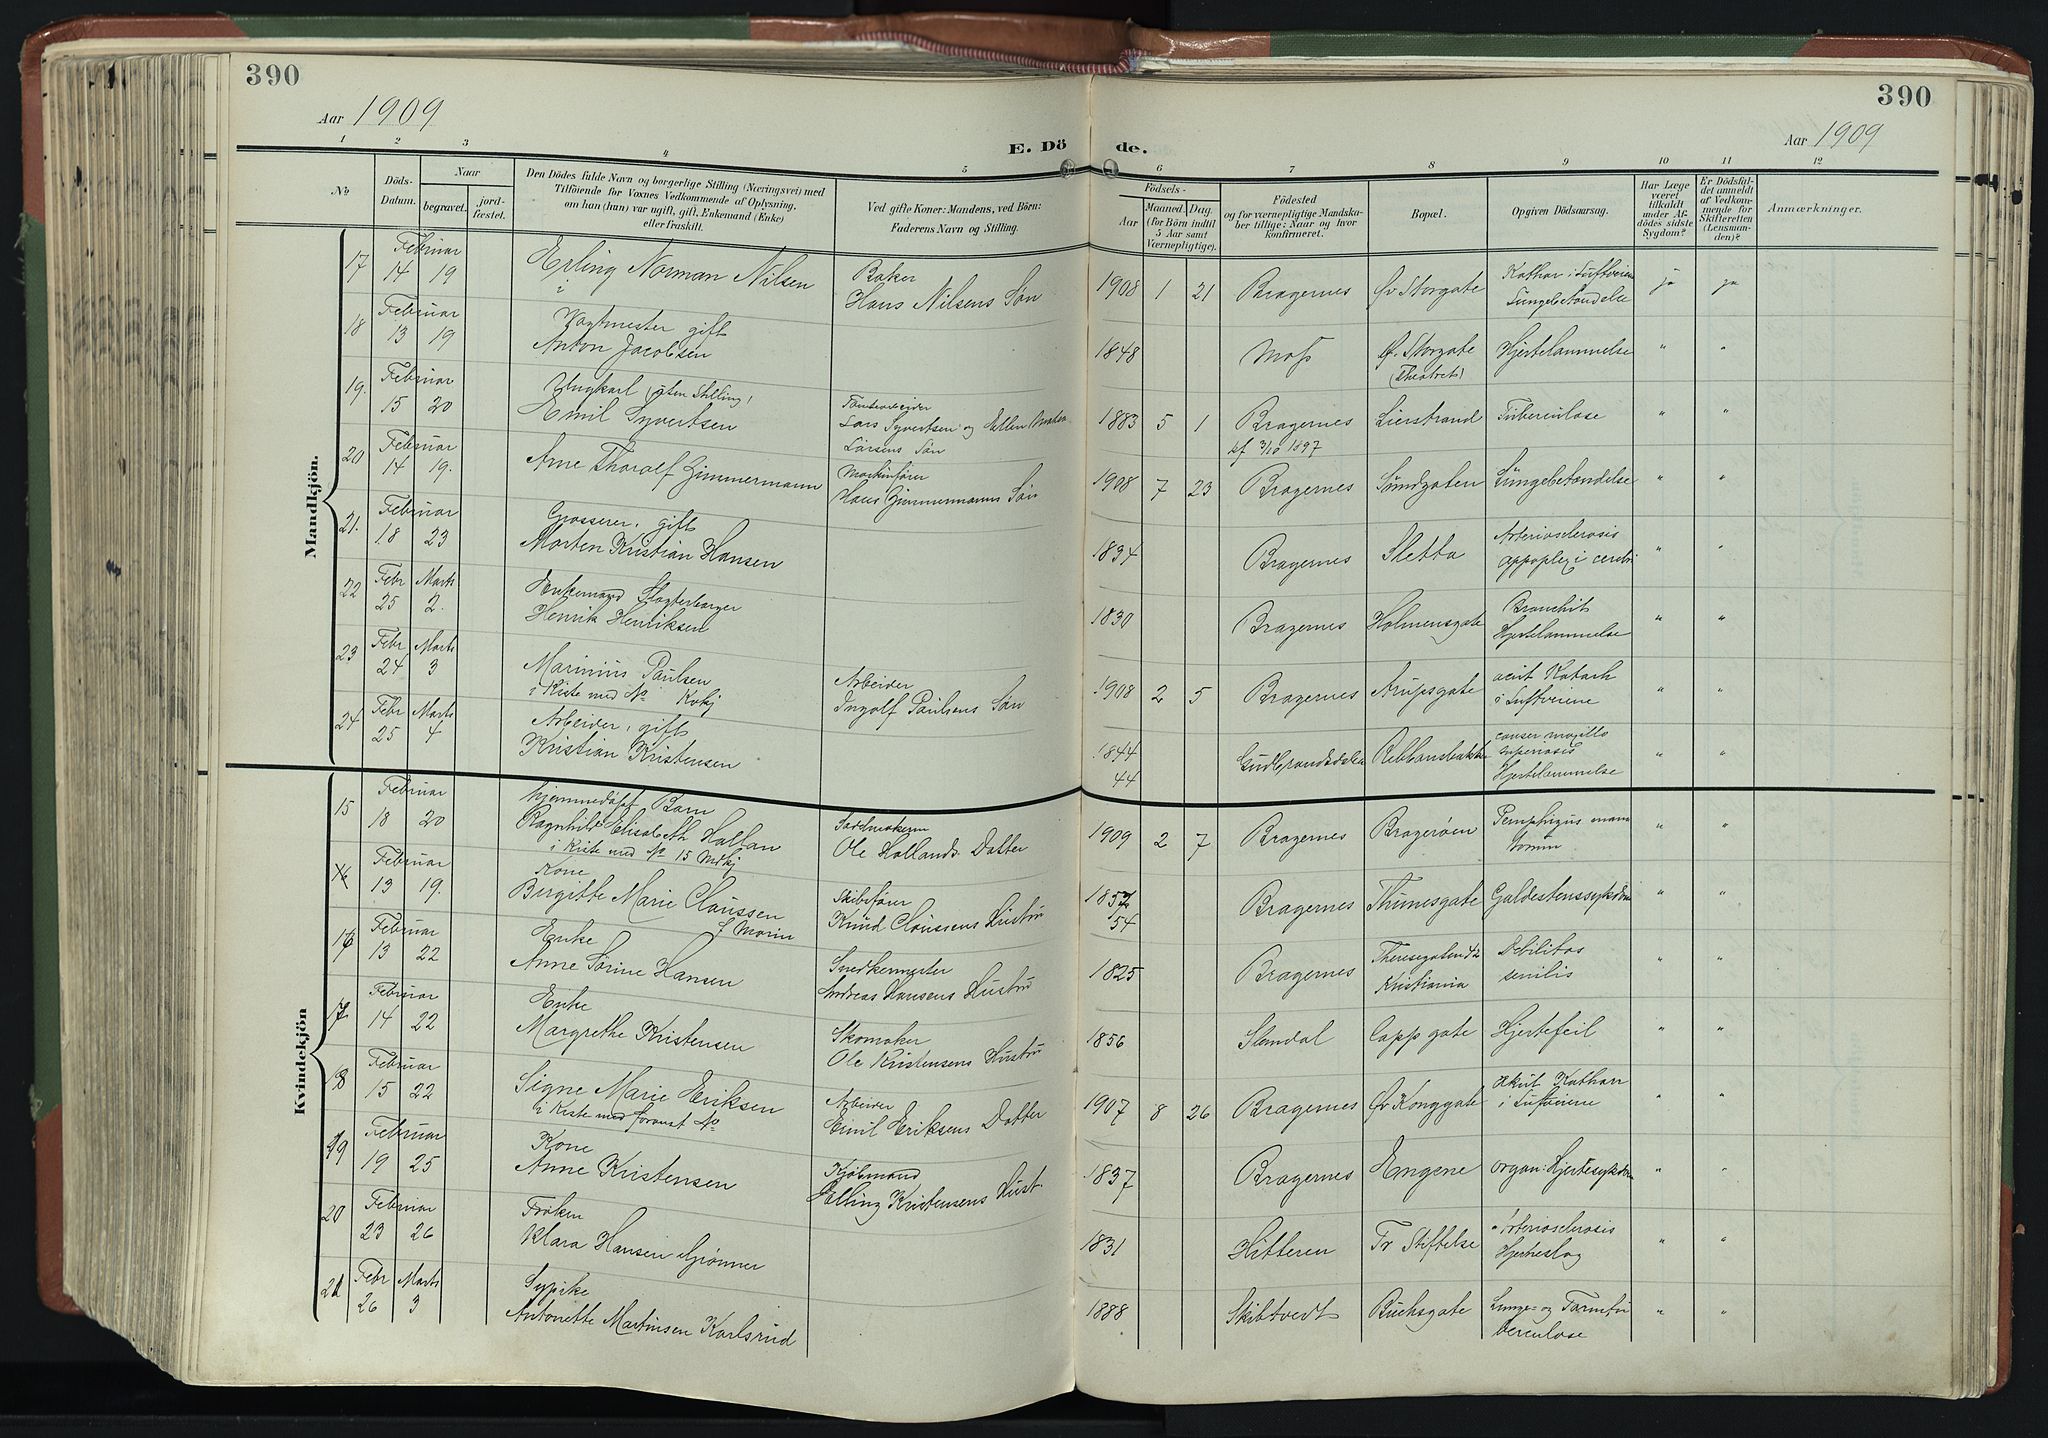 390
390
Aar 1909
E. Dö
de.
Aar 1909
1 2 3 4 5 6 7 8 9 10 11 12
No
Döds-
Datum.
Naar
begravet.
jord-
fæstet.
Den Dödes fulde Navn og borgerlige Stilling (Næringsvei) med
Tilföiende for Voxnes Vedkommende af Oplysning,
om han (hun) var ugift, gift, Enkemand (Enke)
eller fraskilt.
Ved gifte Koner: Mandens, ved Börn:
Faderens Navn og Stilling.
Födsels-
Aar
Maaned. Dag.
(for Börn indtil
5 Aar samt
Værnepligtige).
Födested
og for værnepligtige Mandska-
ber tillige: Naar og hvor
konfirmeret.
Bopæl.
Opgiven Dödsaarsag.
Har Læge
været
tilkaldt
under Af-
dödes sidste
Sygdom?
Er Dödsfal-
det anmeldt
af Vedkom-
mende for
Skifteretten
(Lensman-
den)?
Anmærkninger.
Mandkjön.
17 Februar 14 19 Erling Norman Nilsen
Baker
Hans Nilsens Søn
1908 1 21 Bragernes Øv Storgate
Kathar i Luftveiene
Lungebetændelse
ja ja
18 Februar 13 19
Vagtmester gift
Anton Jacobsen
1848 Moss
Ø. Storgate
(Theatret)
Hjertelammelse " "
19. Februar 15 20
Ungkarl (uten Stilling)
Emil Syvertsen
Tomtearbeider
Lars Syvertsen og Ellen
Larsens Søn
1883 5 1 Bragernes
kf 3/10 1897
Lierstrand Tuberculose " "
20 Februar 14 19.
Arne Thoralf Zimmermann
Maskinfører
Hans Zimmermanns Søn
1908 7 23 Bragernes Sundgaten Lungebetændelse " "
21. Februar 18 23
Grosserer, gift
Morten Kristian Hansen
1834 Bragernes Sletta
Arteriosclerosis
appoplexi cerebri
" "
22 Febr 25 Marts 2.
Enkemand Slagterborger
Henrik Henriksen
1830 Bragernes Holmensgate
Bronchit
Hjertelammelse
" "
23 Febr 24 Marts 3
Marinius Paulsen
i Kiste med No Kvkj
Arbeider
Ingolf Paulsens Søn
1908 2 5 Bragernes Arupsgate
acut Katarh
i Luftveiene
" "
24 Febr 25 Marts 4
Arbeider, gift
Kristian Kristensen
1844
44
Gudbrandsdalen
Hjertelammelse
" "
Kvindekjön
15 Februar 18 20
hjemmedøpt Barn
Ragnhild Elisabeth Holtan
i Kiste med No 15 Mdkj
Sadelmakerm
Ole Hollands Datter
1909 2 7 Bragernes Bragerøen
Pemphigus
" "
16 Februar 13 19.
Kone
Birgitte Marie Claussen
f Morin
Skibsfører
Knud Claussens Hustru
1857
54
Bragernes Thunesgate Galdestenssykdom " "
16 Februar 13 22
Enke
Anne Sørine Hansen
Snedkermester
Andreas Hansens Hustru
1825 Bragernes
Theresegaten 42
Kristiania
Debilitas
senilis
" "
17 Februar 14 22
Enke
Margrethe Kristensen
Skomaker
Ole Kristensens Hustru
1856 Slemdal Cappgate Hjertefeil " "
18 Februar 15 22
Signe Marie Eriksen
i Kiste med foranst No
Arbeider
Emil Eriksens Datter
1907 8 26 Bragernes Øv Konggate
Akut Katharr
i Luftveiene
" "
19 Februar 19 25
Kone
Anne Kristensen
Kjøbmand
Elling Kristensens Hust.
1837 Bragernes Engene organ: Hjertesykdom " "
20 Februar 23 26
Frøken
Klara Hansen Grønner
1831 Hitteren Tr Stiftelse
Arterioselerosis
Hjerteslag
" "
21 Febr 26 Marts 3
Sypike
Antonette Martinsen Karlsrud
1888 Skibtvedt Buchsgate
Lunge- og Tarmtu
berculose
" "